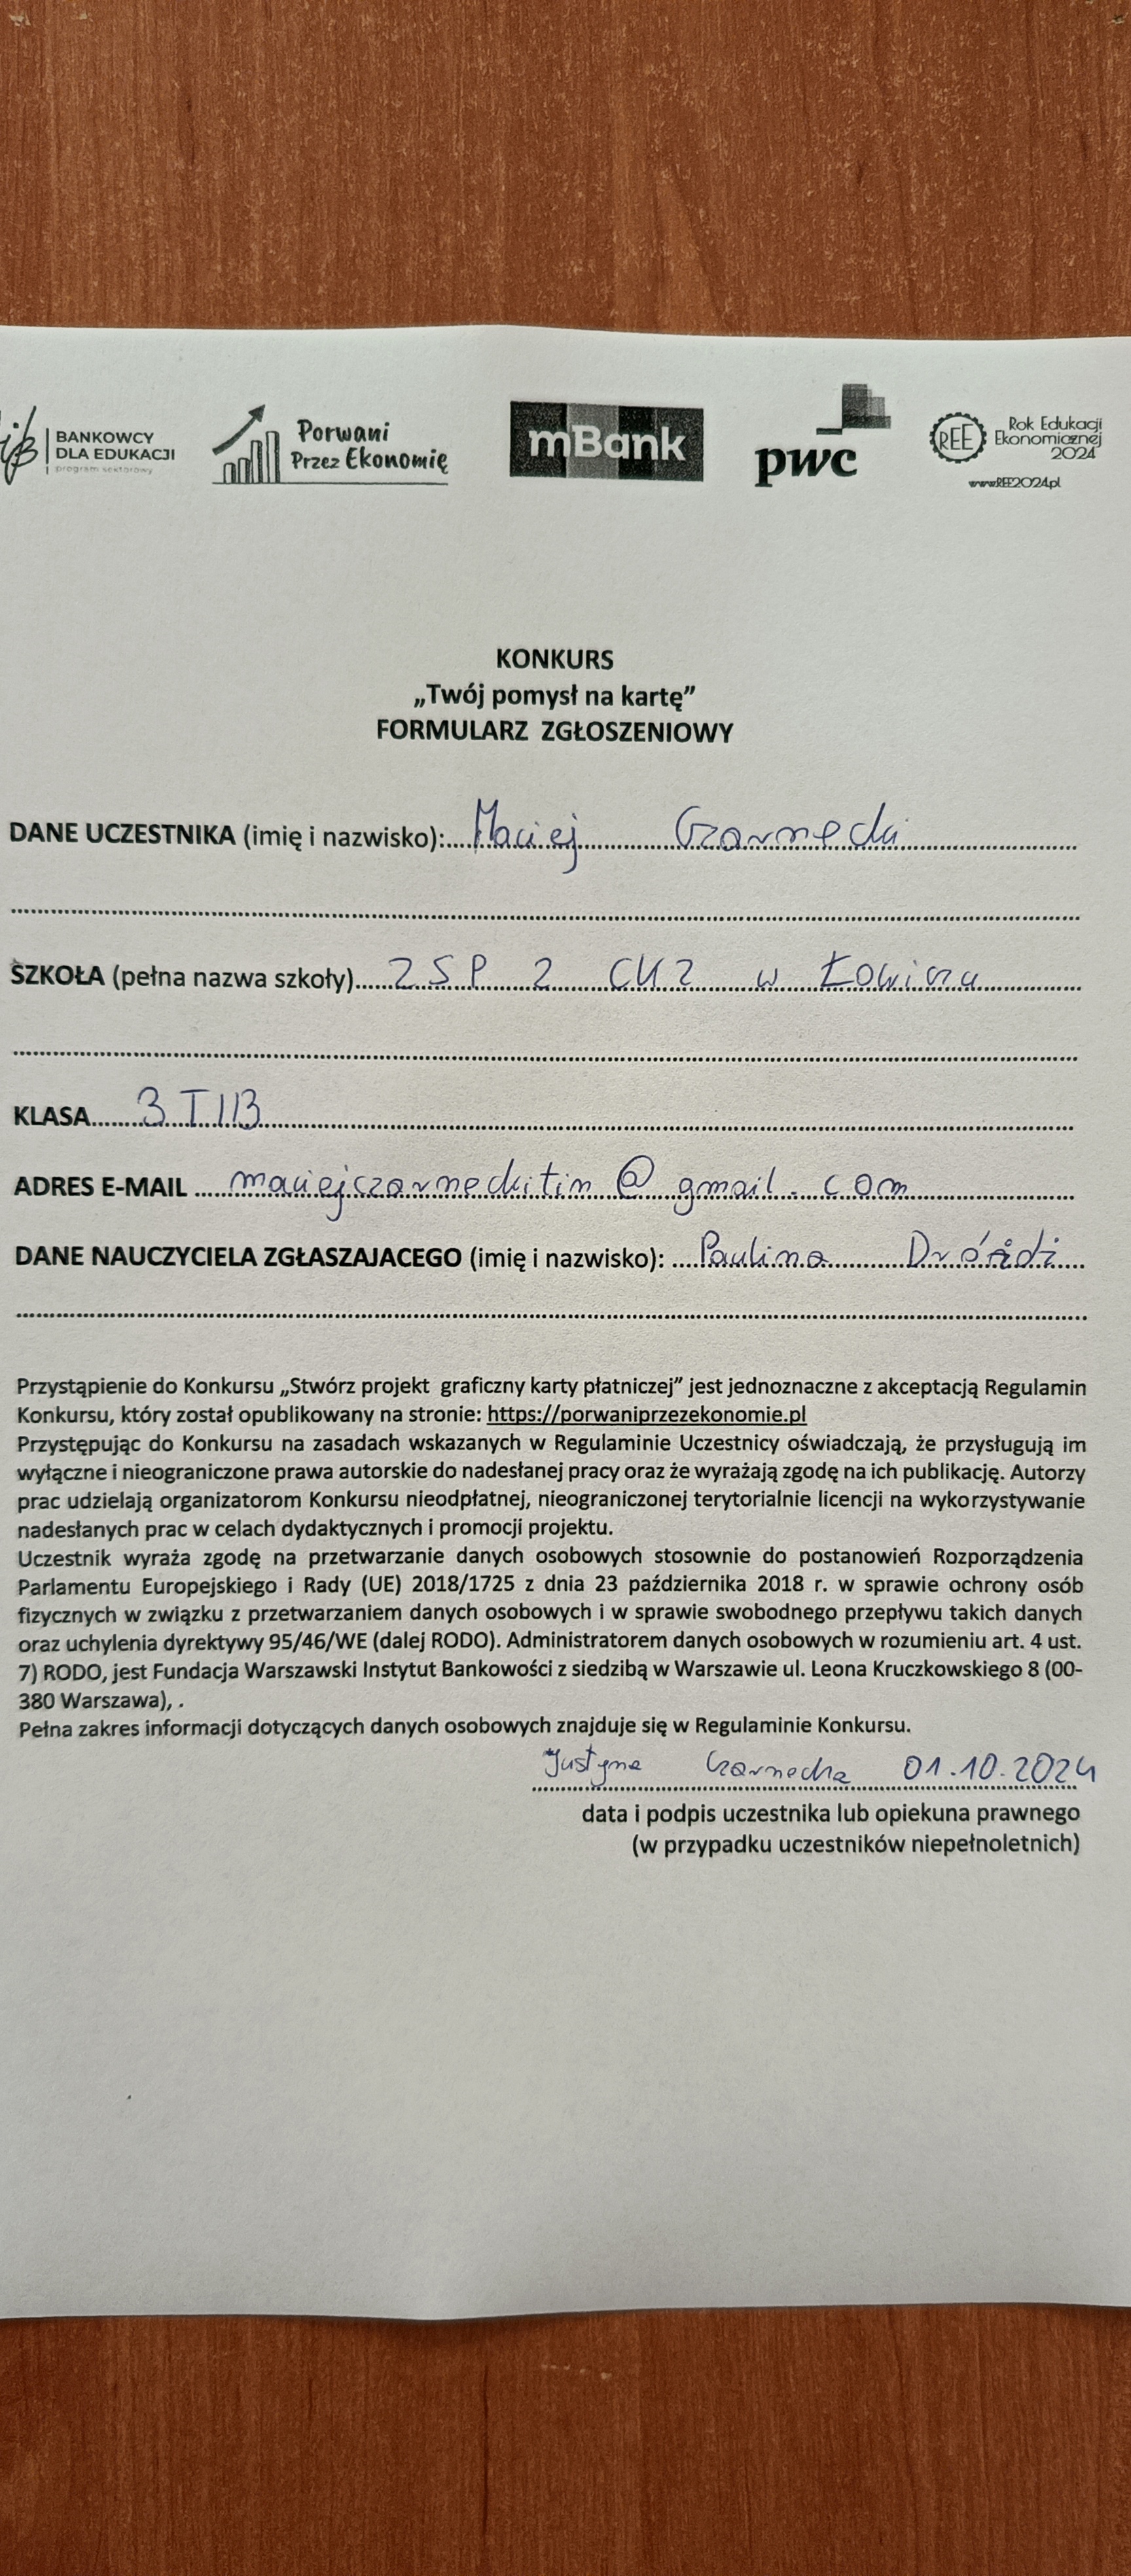 BANKOWCY
DLA EDUKACJI
program sektorowy
Porwani
Przez Ekonomię
mBank
pwc
REE
Rok Edukacji
Ekonomicznej
2024
www.REE2024.pl
KONKURS
„Twój pomysł na kartę”
FORMULARZ ZGŁOSZENIOWY
DANE UCZESTNIKA (imię i nazwisko):....Maciej Czarnecki
SZKOŁA (pełna nazwa szkoły).....ZSP 2 CKZ w Łowiczu
KLASA........3 T I B
ADRES E-MAIL .....maciejczarneckitim@gmail.com
DANE NAUCZYCIELA ZGŁASZAJACEGO (imię i nazwisko): ....Paulina Dróżdż
Przystąpienie do Konkursu „Stwórz projekt graficzny karty płatniczej” jest jednoznaczne z akceptacją Regulamin
Konkursu, który został opublikowany na stronie: https://porwaniprzezekonomie.pl
Przystępując do Konkursu na zasadach wskazanych w Regulaminie Uczestnicy oświadczają, że przysługują im
wyłączne i nieograniczone prawa autorskie do nadesłanej pracy oraz że wyrażają zgodę na ich publikację. Autorzy
prac udzielają organizatorom Konkursu nieodpłatnej, nieograniczonej terytorialnie licencji na wykorzystywanie
nadesłanych prac w celach dydaktycznych i promocji projektu.
Uczestnik wyraża zgodę na przetwarzanie danych osobowych stosownie do postanowień Rozporządzenia
Parlamentu Europejskiego i Rady (UE) 2018/1725 z dnia 23 października 2018 r. w sprawie ochrony osób
fizycznych w związku z przetwarzaniem danych osobowych i w sprawie swobodnego przepływu takich danych
oraz uchylenia dyrektywy 95/46/WE (dalej RODO). Administratorem danych osobowych w rozumieniu art. 4 ust.
7) RODO, jest Fundacja Warszawski Instytut Bankowości z siedzibą w Warszawie ul. Leona Kruczkowskiego 8 (00-
380 Warszawa), .
Pełna zakres informacji dotyczących danych osobowych znajduje się w Regulaminie Konkursu.
Justyna Czarnecka 01.10.2024
data i podpis uczestnika lub opiekuna prawnego
(w przypadku uczestników niepełnoletnich)